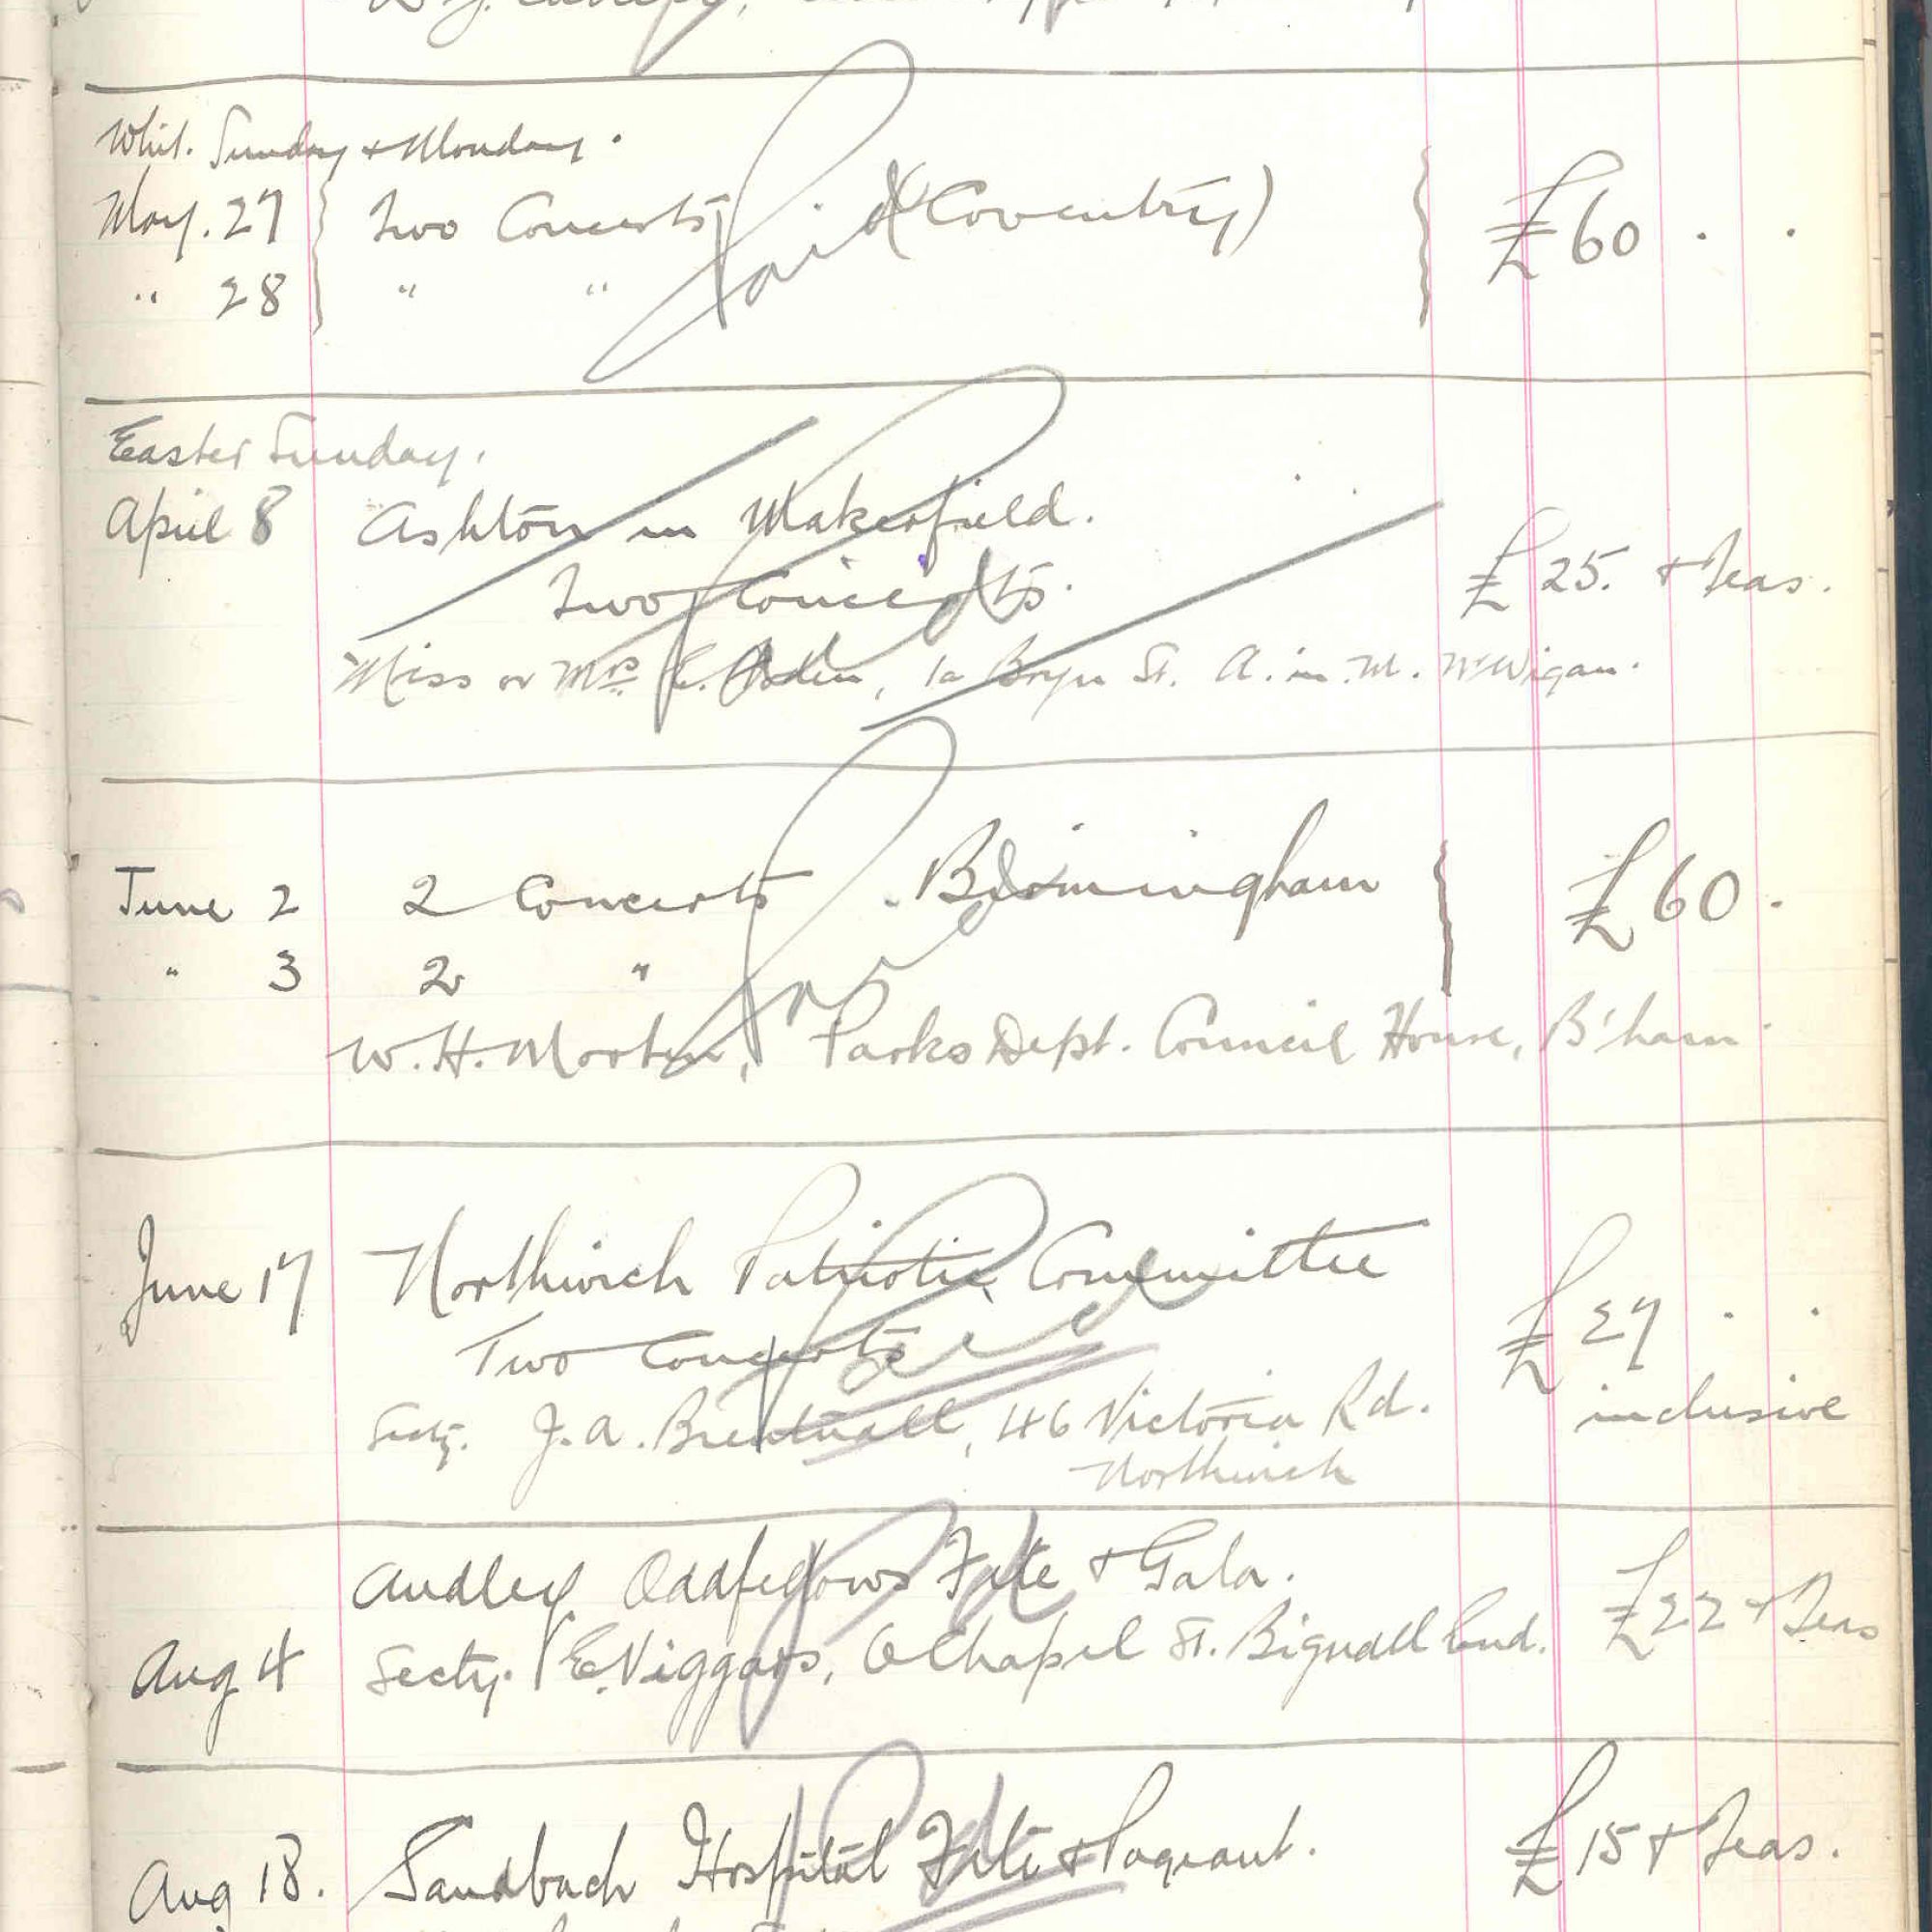 Whit. Sunday & Monday.
May. 27 Two Concerts (Coventry) £60 . .
" 28 " "
Paid
Easter Sunday.
April 8 Ashton in Makerfield.
Two Concerts. £25. & Teas.
Miss or Mrs E. 1a Bryn St. A. in. M. Nr Wigan.
Paid
June 2 2 Concerts . Birmingham £60.
" 3 2 "
W. H. Morten, Parks Dept. Council House, B'ham.
Paid
June 17 Northwich Patriotic Committee
Two Concerts £27 . .
inclusive
Secty. J. A. Brentnall, 46 Victoria Rd.
Northwich
Paid
Audley Oddfellows Fete & Gala. £22 & Teas
Aug 4 Secty. E. Viggars, Chapel St. Bignall End.
Pd
Aug 18. Sandbach Hospital Fete & Pageant. £15 & Teas.
Pd